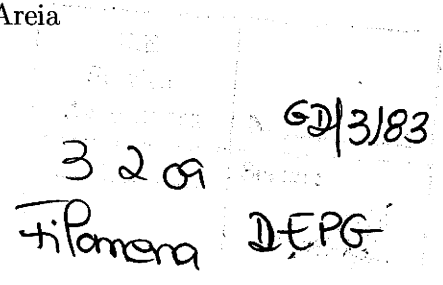 Areia
GD/3/83
3 2 09
Filomena DEPG